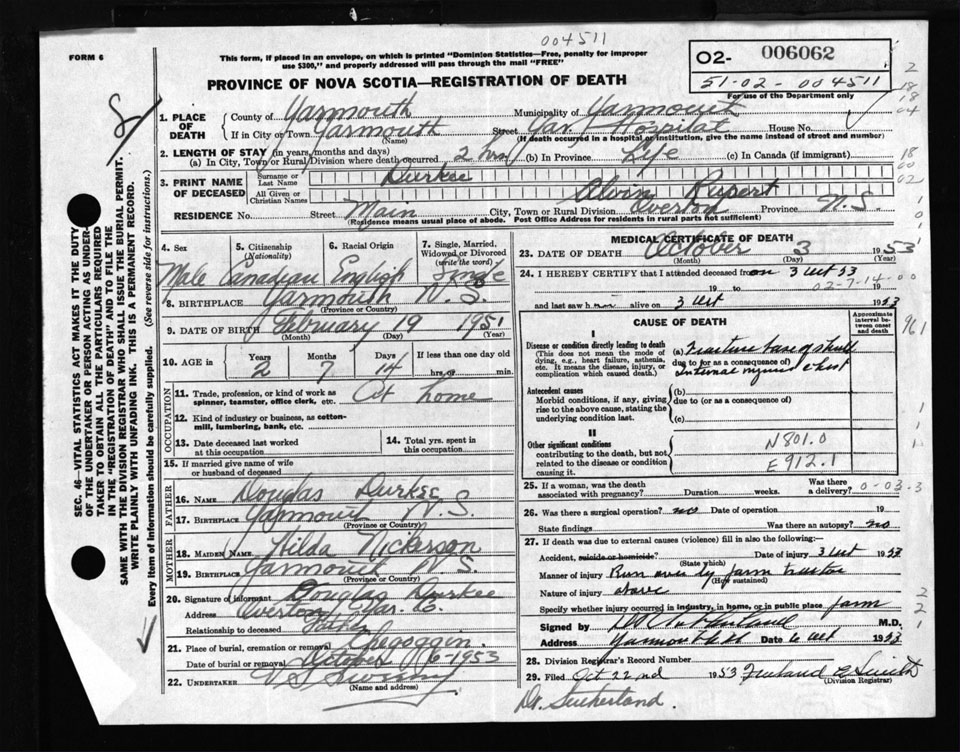 004511
FORM 6
This form, if placed in an envelope, on which is printed "Dominion Statistics—Free, penalty for improper
use $300," and properly addressed will pass through the mail "FREE"
02- 006062
51-02-004511
For use of the Department only
PROVINCE OF NOVA SCOTIA—REGISTRATION OF DEATH
1. PLACE OF DEATH
County of Yarmouth Municipality of Yarmouth
If in City or Town Yarmouth Street Yar. Hospital House No.
(Name) (If death occurred in a hospital or institution, give the name instead of street and number)
2. LENGTH OF STAY (in years, months and days)
(a) In City, Town or Rural Division where death occurred 2 hrs (b) In Province Life (c) In Canada (if immigrant)
3. PRINT NAME OF DECEASED
Surname or Last Name Durkee
All Given or Christian Names Alvin Rupert
RESIDENCE No. Street Main City, Town or Rural Division Overton Province N.S.
(Residence means usual place of abode. Post Office Address for residents in rural parts not sufficient)
4. Sex 5. Citizenship (Nationality) 6. Racial Origin 7. Single, Married, Widowed or Divorced (write the word)
Male Canadian English Single
8. BIRTHPLACE Yarmouth N.S.
(Province or Country)
9. DATE OF BIRTH February 19 1951
(Month) (Day) (Year)
10. AGE in Years Months Days If less than one day old
2 7 14 hrs. or min.
OCCUPATION
11. Trade, profession, or kind of work as
spinner, teamster, office clerk, etc. At home
12. Kind of industry or business, as cotton-
mill, lumbering, bank, etc.
13. Date deceased last worked at this occupation
14. Total yrs. spent in this occupation
15. If married give name of wife
or husband of deceased
FATHER
16. NAME Douglas Durkee
17. BIRTHPLACE Yarmouth N.S.
(Province or Country)
MOTHER
18. MAIDEN NAME Hilda Nickerson
19. BIRTHPLACE Yarmouth N.S.
(Province or Country)
20. Signature of informant Douglas Durkee
Address Overton, Yar. Co.
Relationship to deceased Father
21. Place of burial, cremation or removal Chegoggin
Date of burial or removal October 6-1953
22. UNDERTAKER V S Sweeny
(Name and address)
MEDICAL CERTIFICATE OF DEATH
23. DATE OF DEATH October 3 1953
(Month) (Day) (Year)
24. I HEREBY CERTIFY that I attended deceased from on 3 Oct 53
19 to 19
02-7-14-00
and last saw him alive on 3 Oct 1953
CAUSE OF DEATH
Approximate interval between onset and death
I
Disease or condition directly leading to death
(This does not mean the mode of dying, e.g., heart failure, asthenia, etc. It means the disease, injury, or complication which caused death.)
(a) Fracture base of skull
due to (or as a consequence of)
Internal injuries chest
Antecedent causes
Morbid conditions, if any, giving rise to the above cause, stating the underlying condition last.
(b)
due to (or as a consequence of)
(c)
II
Other significant conditions
contributing to the death, but not related to the disease or condition causing it.
N801.0
E912.1
25. If a woman, was the death associated with pregnancy? Duration weeks. Was there a delivery? 0-03-3
26. Was there a surgical operation? no Date of operation 19
State findings Was there an autopsy? no
27. If death was due to external causes (violence) fill in also the following:—
Accident, suicide or homicide? Date of injury 3 Oct 1953
(State which)
Manner of injury Run over by farm tractor
(How sustained)
Nature of injury above
Specify whether injury occurred in industry, in home, or in public place farm
Signed by M.D.
Address Yarmouth NS Date 6 Oct 1953
28. Division Registrar's Record Number
29. Filed Oct 22nd 1953
(Division Registrar)
Dr. Sutherland.
SEC. 46—VITAL STATISTICS ACT MAKES IT THE DUTY
OF THE UNDERTAKER OR PERSON ACTING AS UNDER-
TAKER TO OBTAIN ALL THE PARTICULARS REQUIRED
IN THE "REGISTRATION OF DEATH" AND TO FILE THE
SAME WITH THE DIVISION REGISTRAR WHO SHALL ISSUE THE BURIAL PERMIT.
WRITE PLAINLY WITH UNFADING INK. THIS IS A PERMANENT RECORD.
Every item of Information should be carefully supplied. (See reverse side for instructions.)